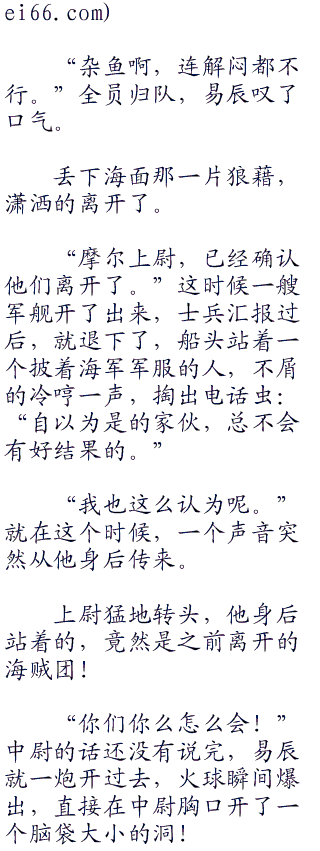 ei66.com)
“杂鱼啊，连解闷都不
行。”全员归队，易辰叹了
口气。
丢下海面那一片狼藉，
潇洒的离开了。
“摩尔上尉，已经确认
他们离开了。”这时候一艘
军舰开了出来，士兵汇报过
后，就退下了，船头站着一
个披着海军军服的人，不屑
的冷哼一声，掏出电话虫：
“自以为是的家伙，总不会
有好结果的。”
“我也这么认为呢。”
就在这个时候，一个声音突
然从他身后传来。
上尉猛地转头，他身后
站着的，竟然是之前离开的
海贼团！
“你们你么怎么会！”
中尉的话还没有说完，易辰
就一炮开过去，火球瞬间爆
出，直接在中尉胸口开了一
个脑袋大小的洞！